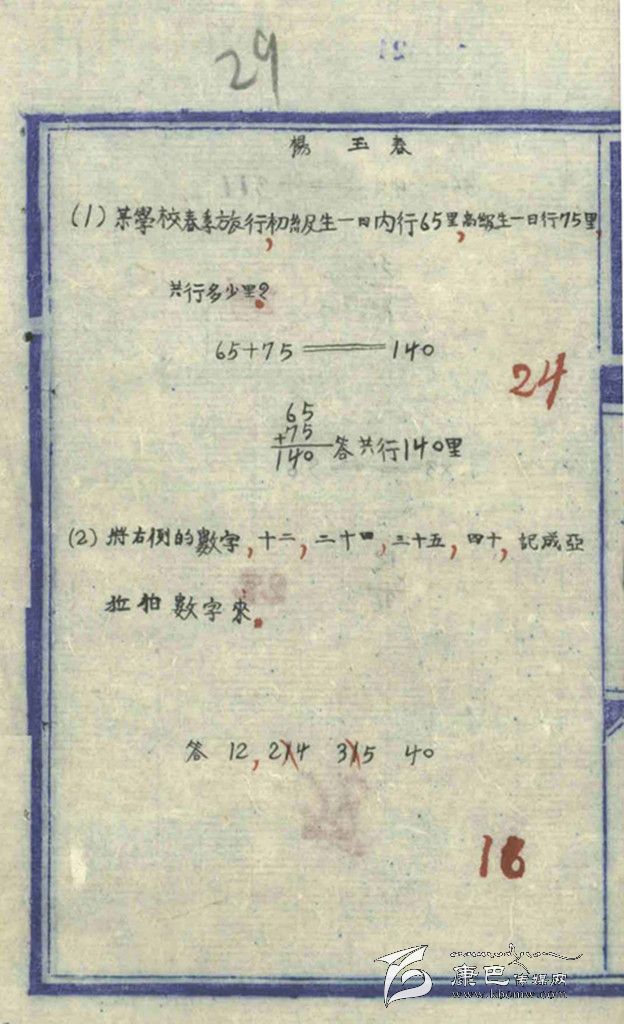 29
楊玉春
(1) 某學校春季旅行,初級生一日內行65里,高級生一日行75里,
共行多少里?
65+75══140
24
65
+75
140 答共行140里
(2) 將右側的數字,十二,二十四,三十五,四十,記成亞
拉伯數字來.
答 12, 214 315 40
16
康巴传媒网
www.kbcmw.com